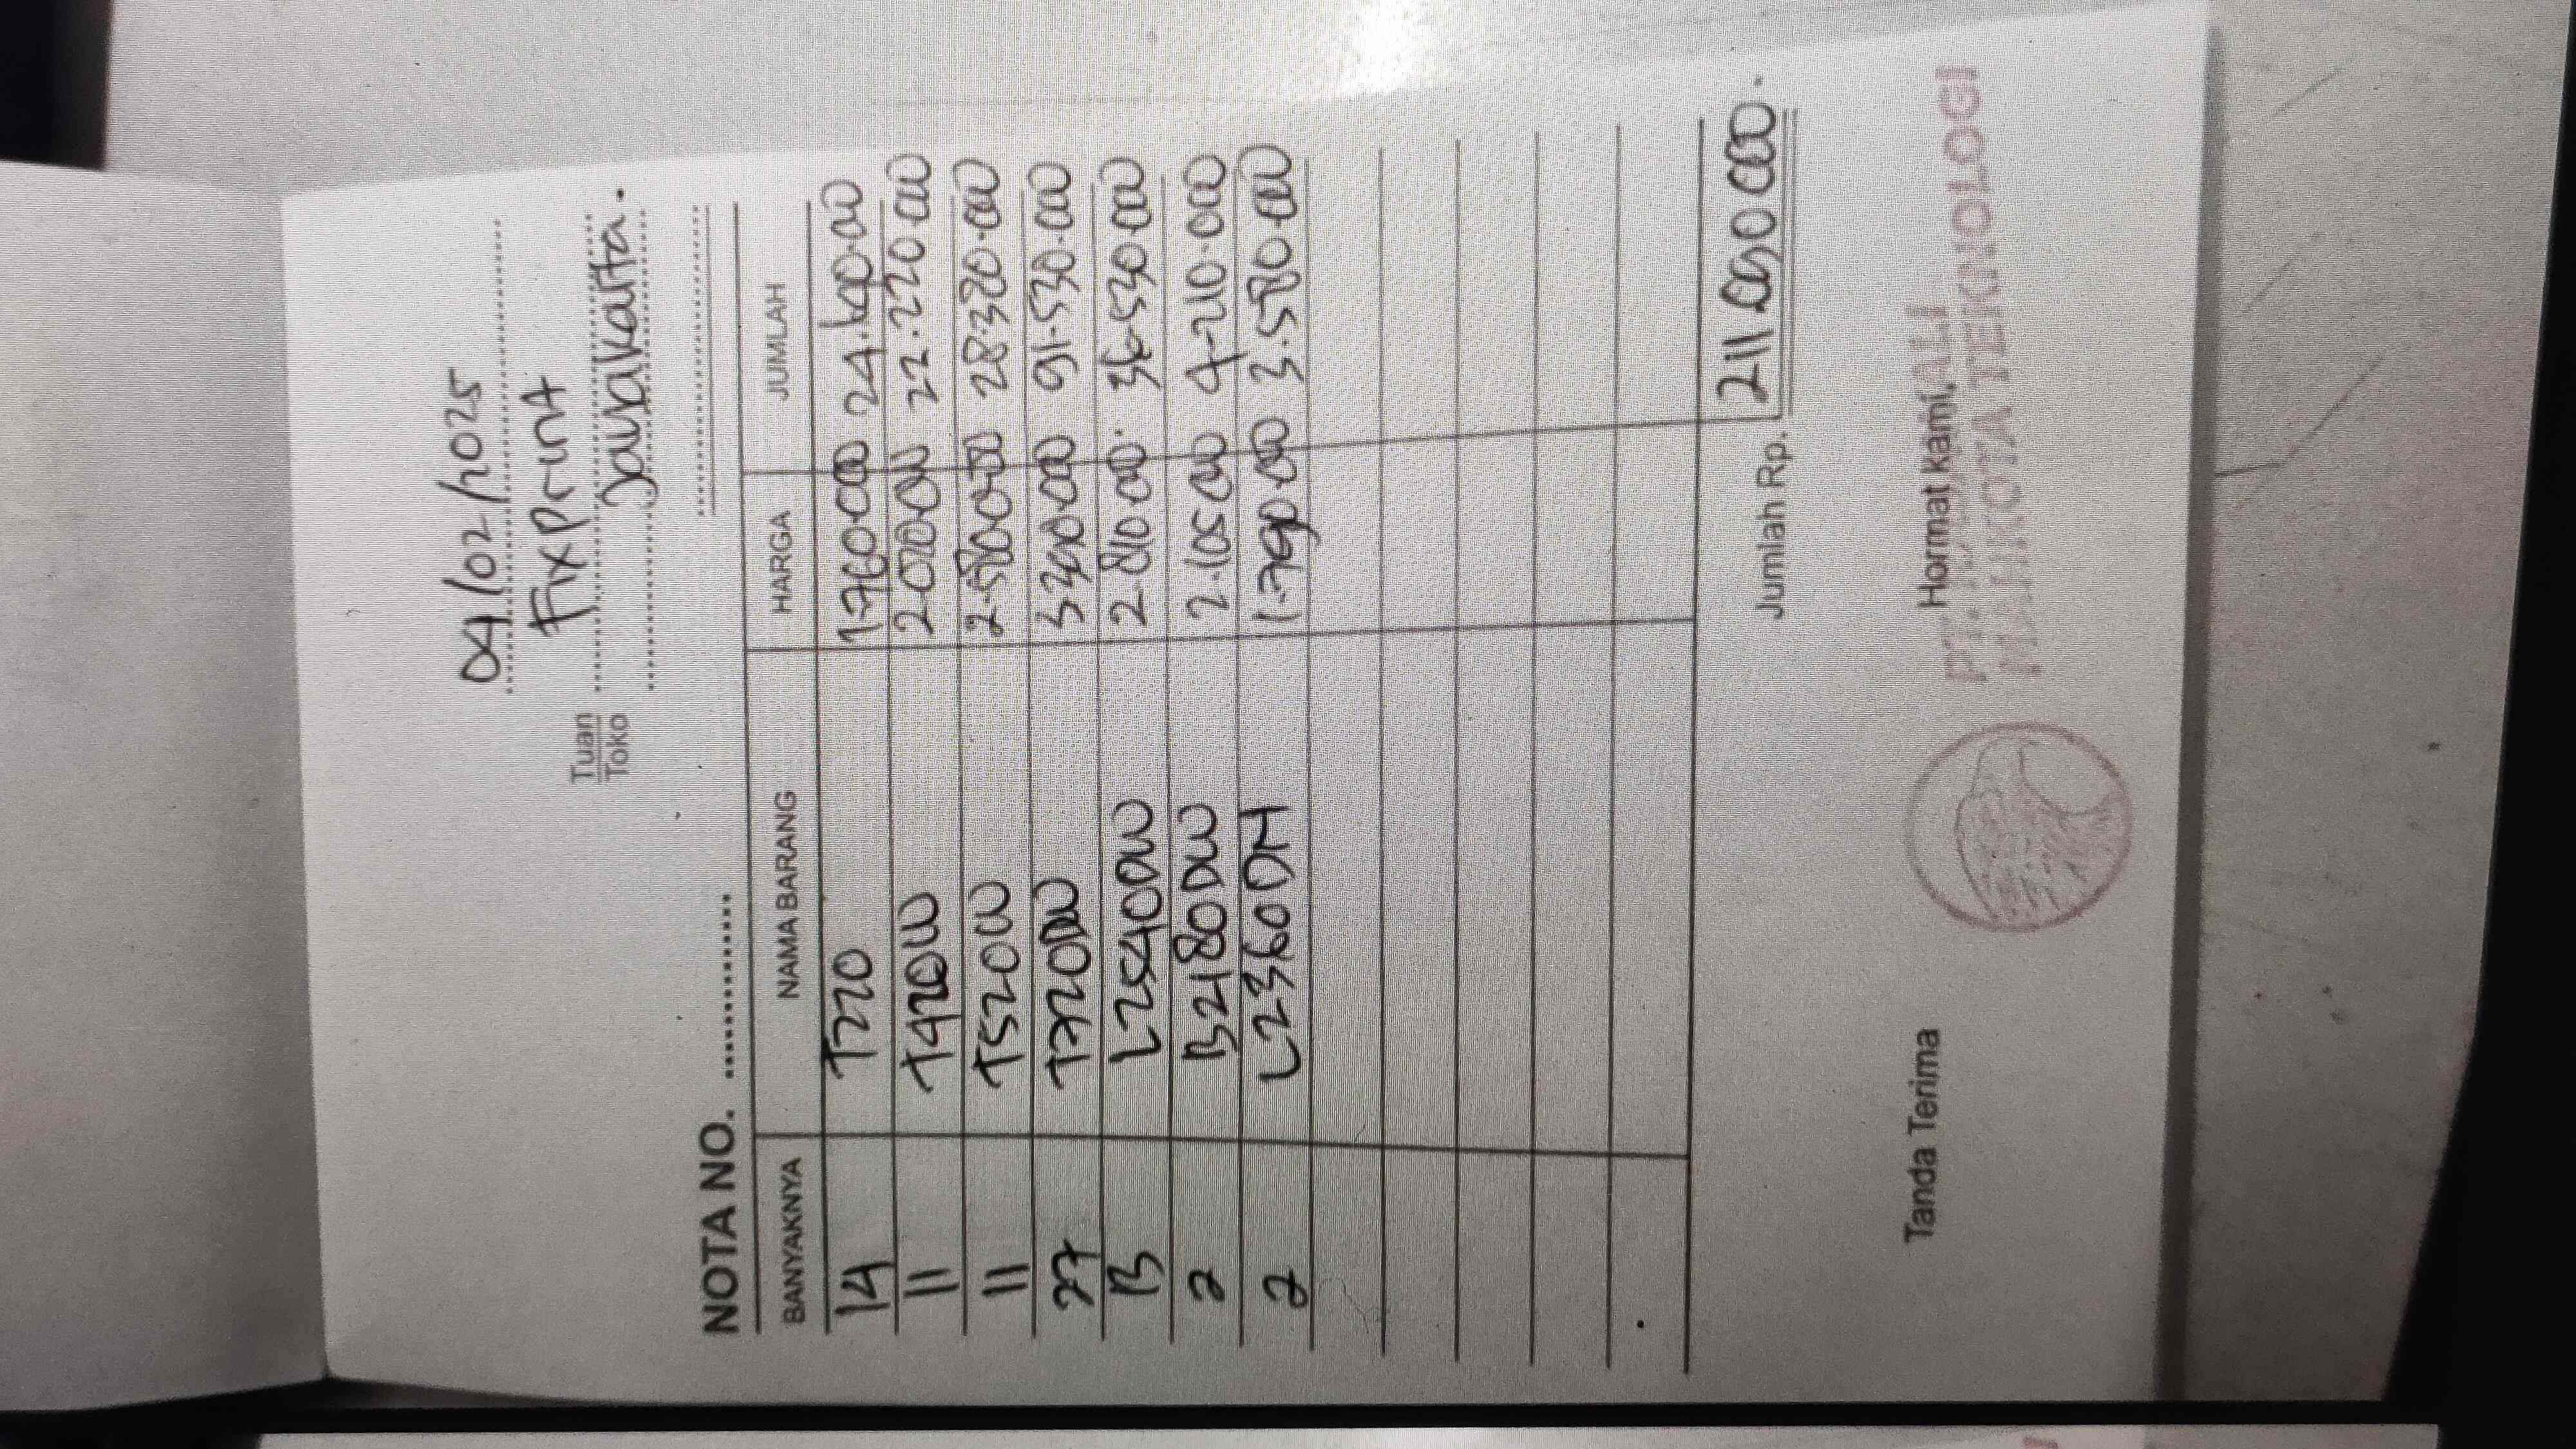 04/02/2025
Fixprint
Tuan
Toko
Jayakarta.
NOTA NO. ............
BANYAKNYA NAMA BARANG HARGA JUMLAH
14 T220 1.760.000 24.640.000
11 T420W 2.020.000 22.220.000
11 T520W 2.580.000 28.380.000
27 T720DW 3.390.000 91.530.000
13 L2540DW 2.810.000 36.530.000
2 B2180DW 2.105.000 4.210.000
2 L2360DN 1.790.000 3.580.000
Jumlah Rp. 211.090.000.
Tanda Terima Hormat kami,
TEKNOLOGI